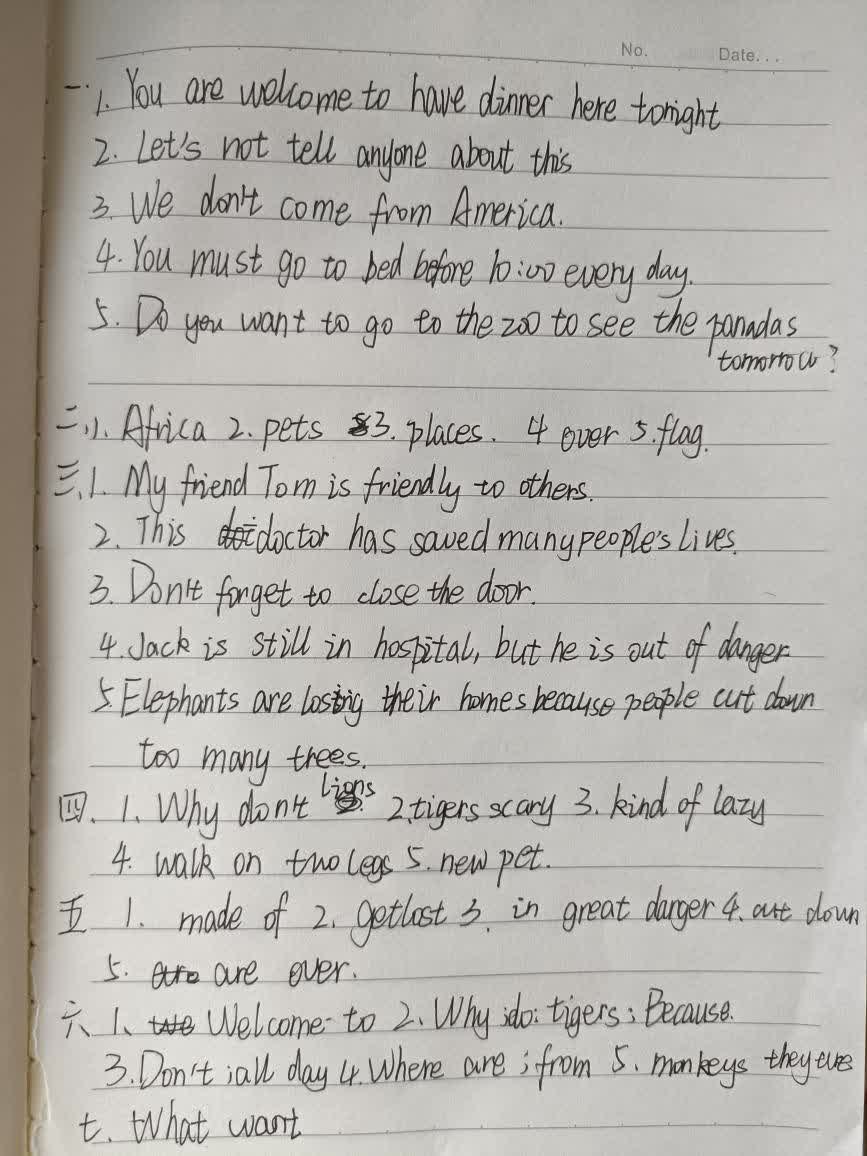 No. Date...
一. 1. You are welcome to have dinner here tonight
2. Let's not tell anyone about this
3. We don't come from America.
4. You must go to bed before 10:00 every day.
5. Do you want to go to the zoo to see the panadas
tomorrow?
二、1. Africa 2. pets 3. places. 4 over 5. flag.
三、1. My friend Tom is friendly to others.
2. This doctor has saved many people's lives.
3. Don't forget to close the door.
4. Jack is still in hospital, but he is out of danger
5. Elephants are losing their homes because people cut down
too many trees.
四. 1. Why don't lions 2. tigers scary 3. kind of lazy
4. walk on two legs 5. new pet.
五 1. made of 2. get lost 3. in great danger 4. cut down
5. are over.
六、1、Welcome to 2、Why ; do ; tigers ; Because.
3. Don't ; all day 4. Where are ; from 5. monkeys they are
七. What want